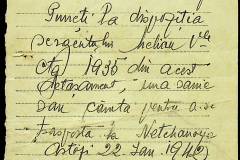 Puneti la dispozitia
sergentului Melian Vle
Ctg 1935 din acest
detasament, una sanie
sau caruta pentru a se
transporta la Netchanoya
Astazi 22 Jan. 1942